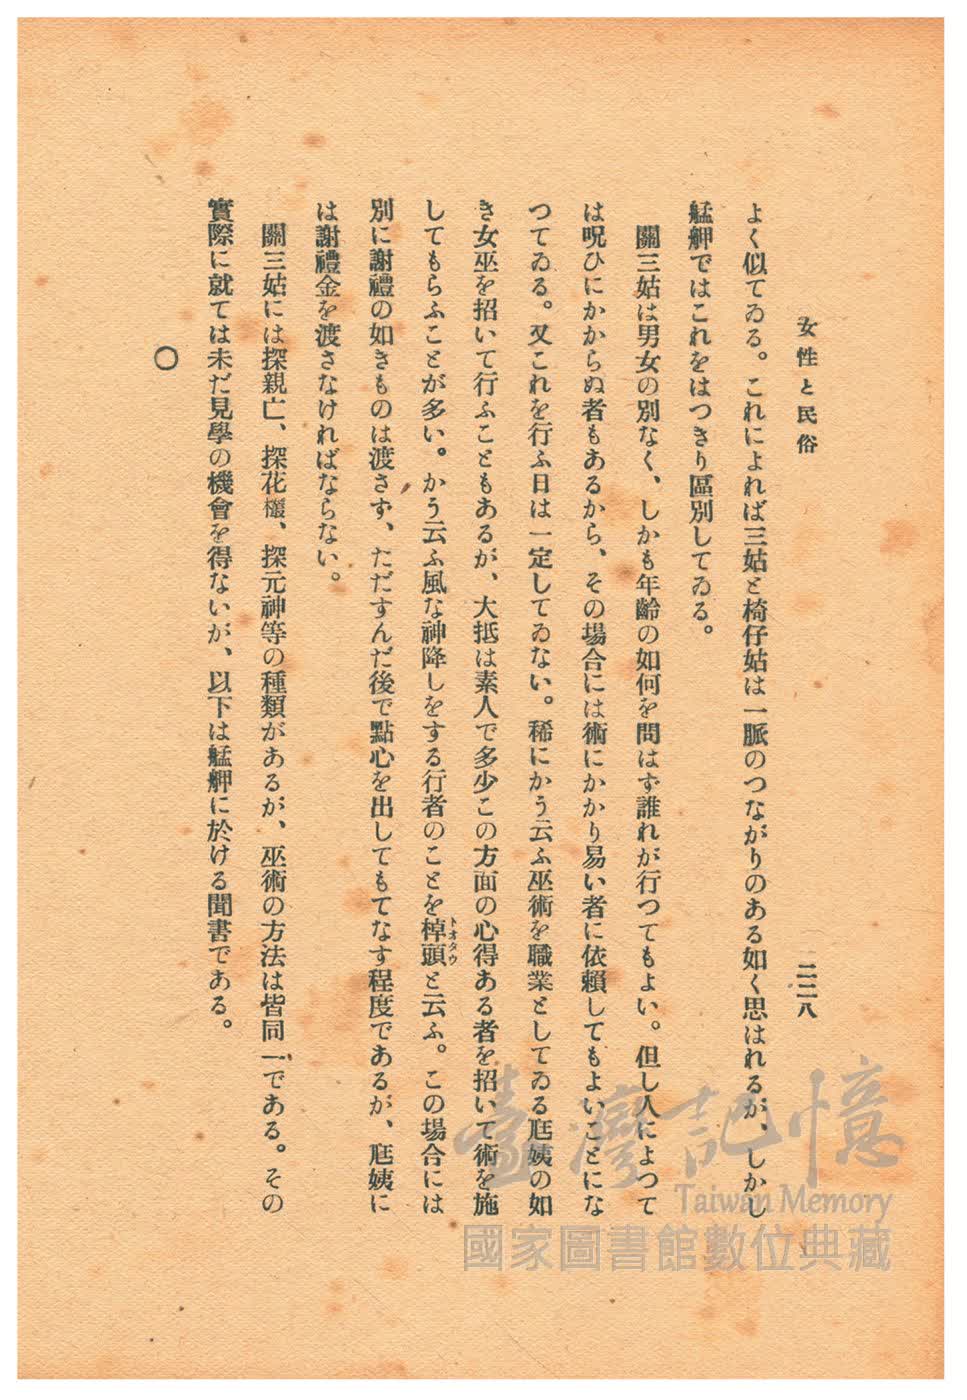 女性と民俗
二二八
よく似てゐる。これによれば三姑と椅仔姑は一脈のつながりのある如く思はれるが、しかし
艋舺ではこれをはつきり區別してゐる。
關三姑は男女の別なく、しかも年齡の如何を問はず誰れが行つてもよい。但し人によつて
は呪ひにかからぬ者もあるから、その場合には術にかかり易い者に依賴してもよいことにな
つてゐる。又これを行ふ日は一定してゐない。稀にかう云ふ巫術を職業としてゐる尫姨の如
き女巫を招いて行ふこともあるが、大抵は素人で多少この方面の心得ある者を招いて術を施
してもらふことが多い。かう云ふ風な神降しをする行者のことを棹頭と云ふ。この場合には
トオタウ
別に謝禮の如きものは渡さず、ただすんだ後で點心を出してもてなす程度であるが、尫姨に
は謝禮金を渡さなければならない。
關三姑には探親亡、探花欉、探元神等の種類があるが、巫術の方法は皆同一である。その
實際に就ては未だ見學の機會を得ないが、以下は艋舺に於ける聞書である。
〇
臺灣記憶
Taiwan Memory
國家圖書館數位典藏